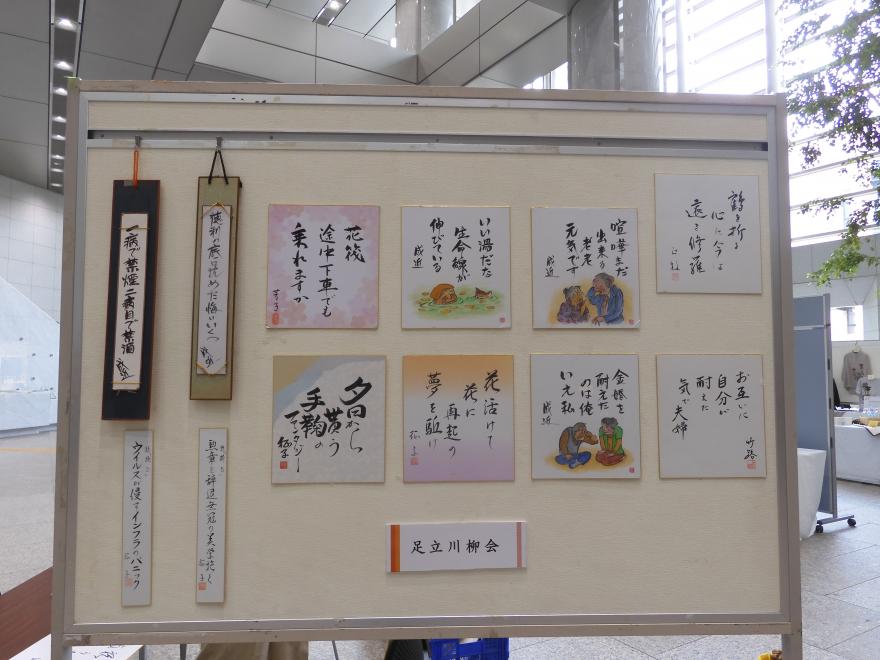 一病で禁煙二病目で禁酒
徳利の底は読めた悔いいくつ
花筏
途中下車でも
乗れますか
芳子
いい湯だな
生命線が
伸びている
成近
喧嘩まだ
出来る
老老
元気です
成近
鶴を折る
心に今も
遠き修羅
夕日から
貰う
手鞠の
ファンタジー
花活けて
花に
再起の
夢を駈け
金婚を
耐えた
のは俺
いえ私
成近
お互いに
自分が
耐えた
気で夫婦
竹路
ウイルスが侵すインフラのパニック
勲章を辞退無冠の美学抱く
足立川柳会